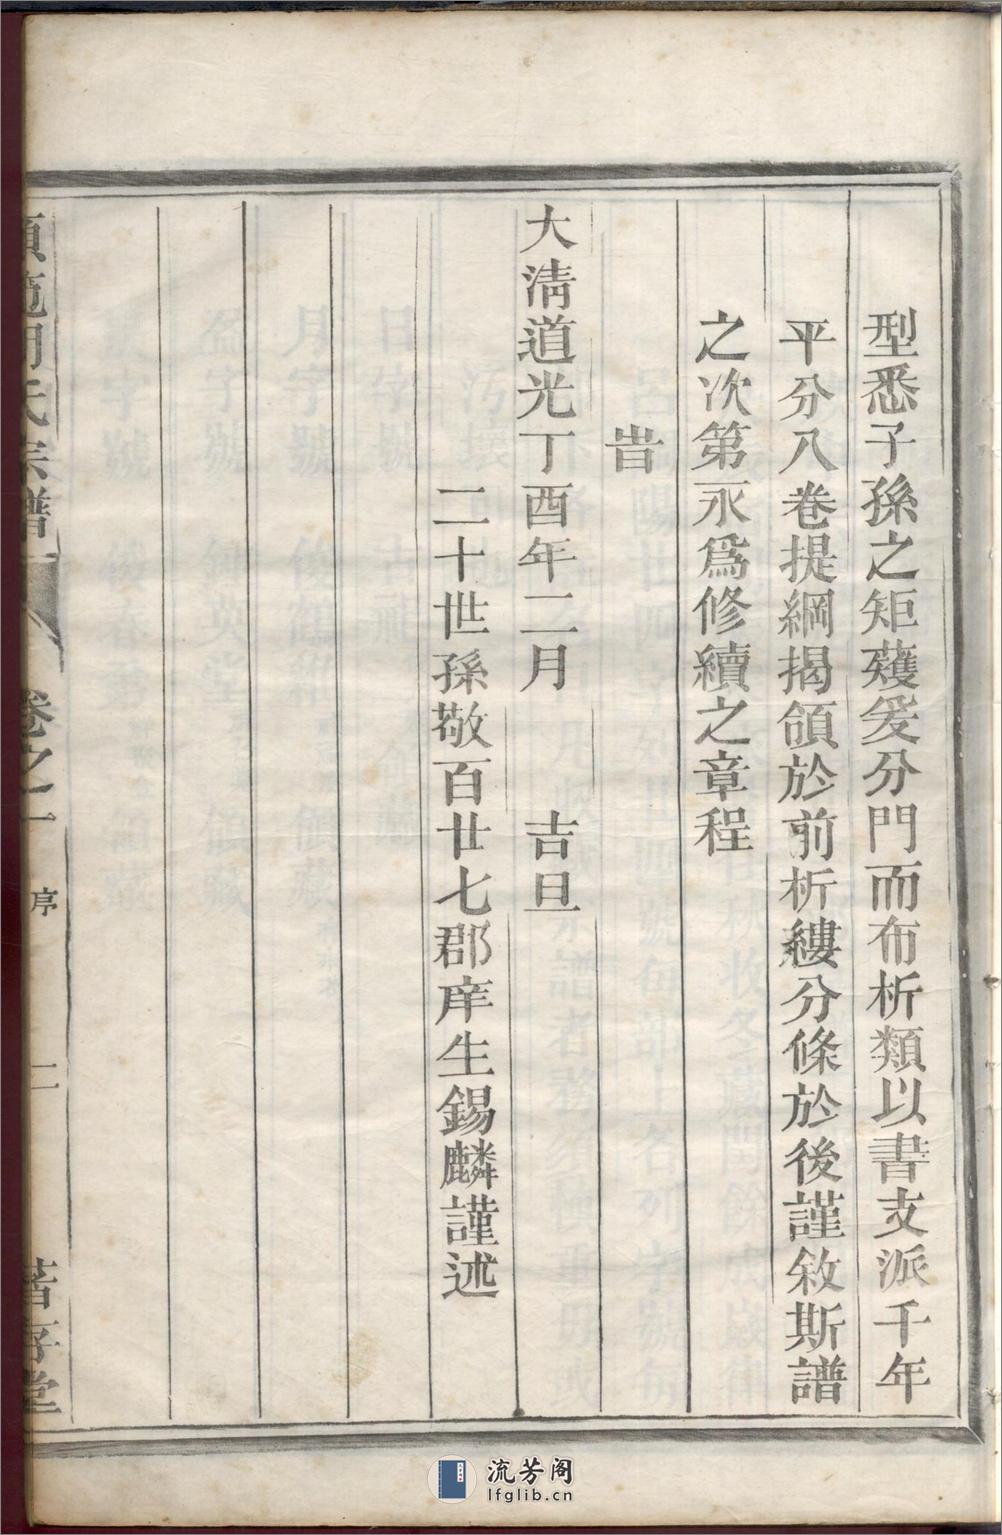 型悉子孫之矩矱爰分門而布析類以書支派千年
平分八卷提綱揭領於前析縷分條於後謹敘斯譜
之次第永爲修續之章程
旹
大淸道光丁酉年二月 吉旦
二十世孫敬百廿七郡庠生錫麟謹述
氏宗譜 卷之一 序 二 著存堂
流芳阁
lfglib.cn